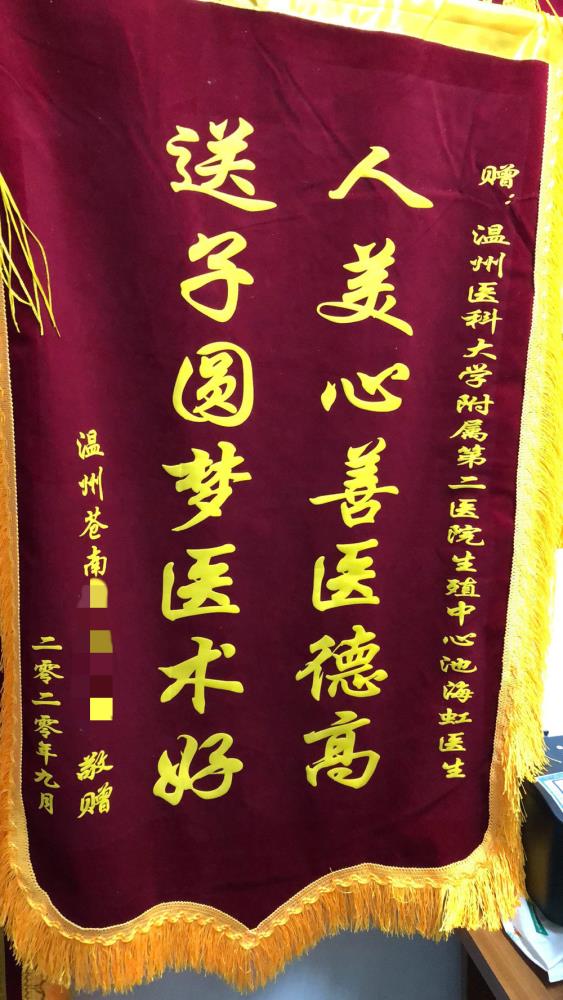 赠：温州医科大学附属第二医院生殖中心池海虹医生
人美心善医德高
送子圆梦医术好
温州苍南
敬赠
二零二零年九月